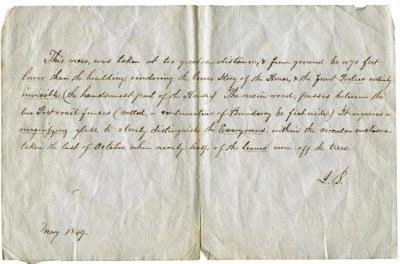 This view, was taken at too great a distance, & from ground 60 or 70 feet
lower than the building; rendering the lower Story of the House, & the front Portico entirely
invisible. (the handsomest part of the House.) The main road, passes between the
two Post & rail fences. (called, a continuation of Broadway 60 feet wide.) It requires a
magnifying glass to clearly distinguish the Evergreens, within the circular enclosure,
taken the last of October, when nearly half of the leaves were off the trees.
May 1849.